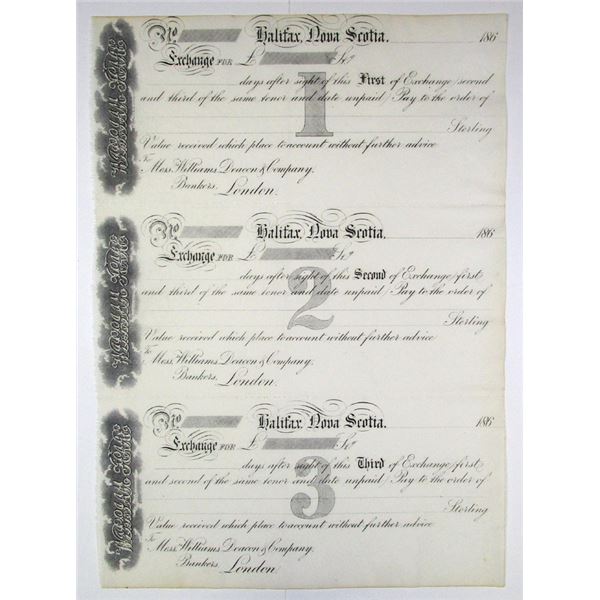 No Halifax, Nova Scotia. 186
Exchange FOR £ Stg
days after sight of this First of Exchange (second
and third of the same tenor and date unpaid) Pay to the order of
1
Sterling
Value received which place to account without further advice
To Messrs. Williams, Deacon & Company,
Bankers, London.
No Halifax, Nova Scotia. 186
Exchange FOR £ Stg
days after sight of this Second of Exchange (first
and third of the same tenor and date unpaid) Pay to the order of
2
Sterling
Value received which place to account without further advice
To Messrs. Williams, Deacon & Company,
Bankers, London.
No Halifax, Nova Scotia. 186
Exchange FOR £ Stg
days after sight of this Third of Exchange (first
and second of the same tenor and date unpaid) Pay to the order of
3
Sterling
Value received which place to account without further advice
To Messrs. Williams, Deacon & Company,
Bankers, London.